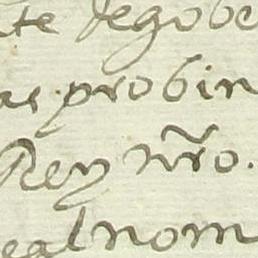 te de gobe
as probin
Rey nr̃o.
eal nom